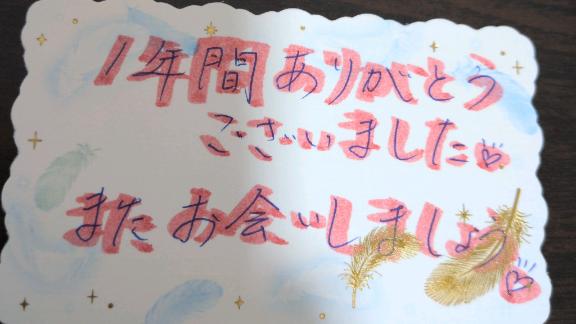 1年間ありがとう
ございました♡
またお会いしましょう♡